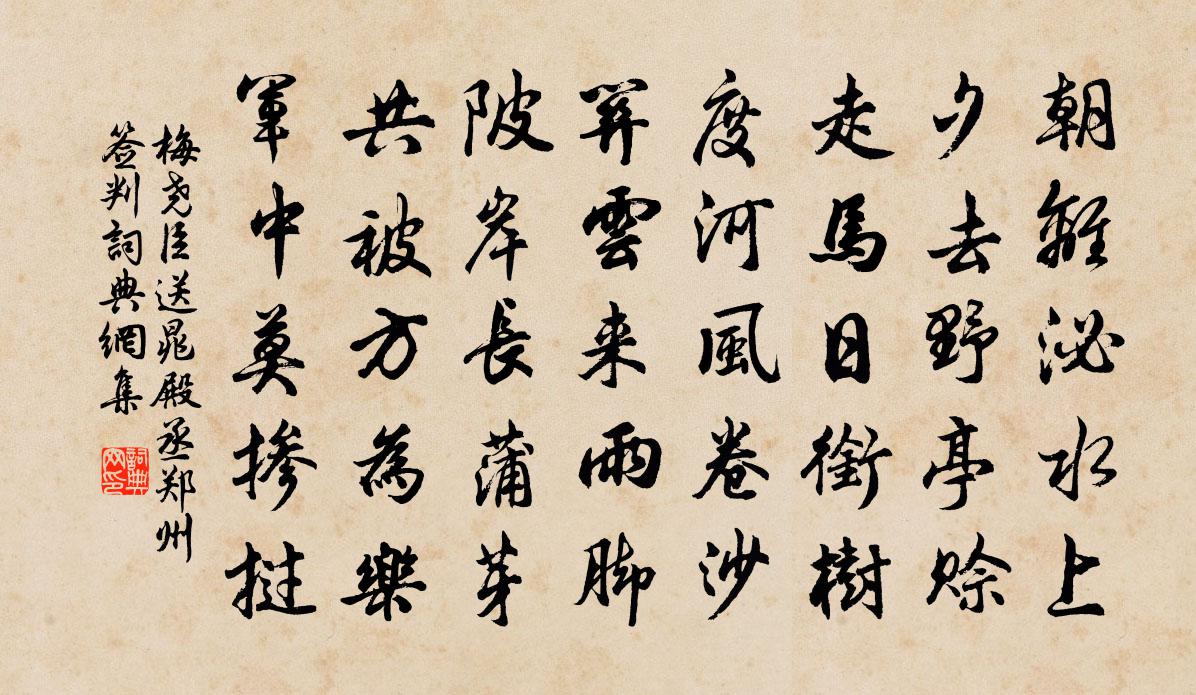 朝離泌水上
夕去野亭賒
走馬日銜樹
度河風卷沙
雲来雨脚
陂岸長蒲芽
共被方為樂
軍中莫摻挝
梅尧臣送晁殿丞郑州
签判詞典網集
詞典网印